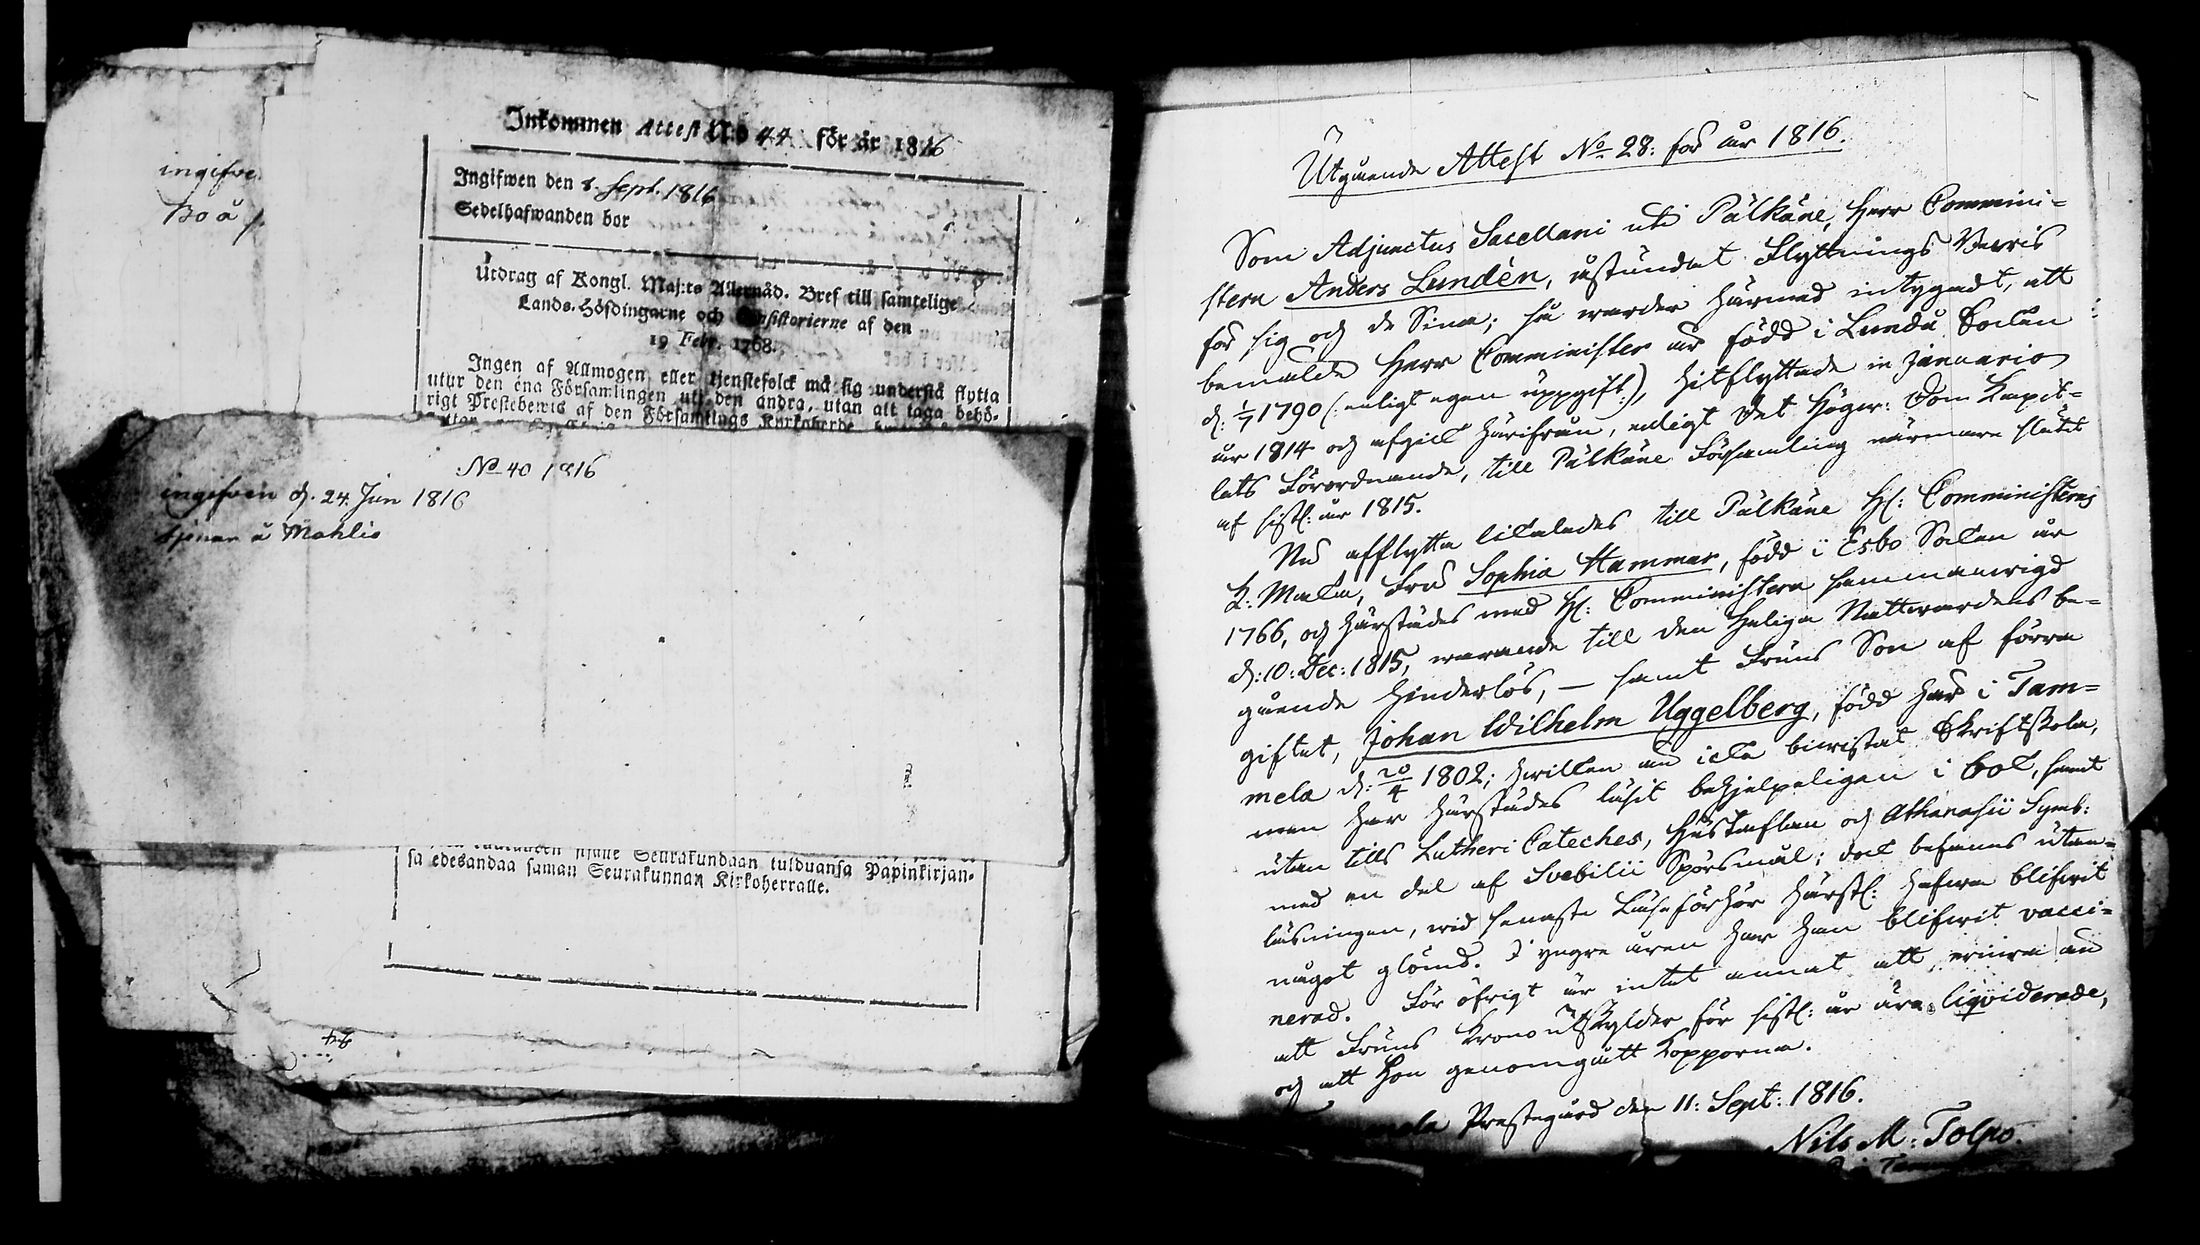 ingifve
Bo å
Inkommen Attest N:o 44 för år 1816
Ingifwen den 8. Sept. 1816
Sedelhafwanden bor
Utdrag af Kongl. Maj:ts Allernåd. Bref till samtelige
Lands-Höfdingarne och Consistorierne af den
19 Febr. 1768.
Ingen af Allmogen eller tjenstefolck må sig understå flytta
utur den ena Församlingen uti den andra, utan att taga behö-
rigt Prestebewis af den Församlings Kyrkoherde
No 40 1816
ingifven d. 24. Jun 1816
tjenar å Mahlis
Seurakundaan tulduansa Papinkirjan-
sa edesandaa saman Seurakunnan Kirkoherralle.
Utgående Attest No 28: för år 1816.
Som Adjunctus Sacellani uti Pälkäne, Herr Commini-
stern Anders Lundén, åstundat Flyttnings Bevis
för sig och de Sina; så warder härmed intygadt, att
bemälde Herr Comminister är född i Lundå Socken
d: 1/7 1790 (: enligt egen uppgift:), hitflyttade in Januario
år 1814 och afgick härifrån, enligt Det Högw: Dom Kapit-
lets Förordnande, till Pälkäne Församling närmare slutet
af sistl: år 1815.
Nu afflytta likaledes till Pälkäne H: Comministerns
K: Maka, Fru Sophia Hammar, född i Esbo Socken år
1766, och härstädes med H: Comministern sammanwigd
d: 10: Dec: 1815, warande till den Heliga Nattwardens be-
gående hinderlös, — samt Fruns Son af förra
giftet, Johan Wilhelm Uggelberg, född här i Tam-
mela d: 20/4 1802; hwilken än icke biwistat Skriftskola,
men har härstädes läsit behjelpeligen i bok, samt
utan tills Lutheri Cateches, Hustaflan och Athanasii Symb:
med en del af Svebilii Spörsmål; dock befanns utan-
läsningen, wid senaste Läseförhör härst: hafwa blifwit
något glömd. I yngre åren har han blifwit vacci-
nerad. För öfrigt är intet annat att erinra än
att Fruns Krono Utskylder för sistl: år äro liqviderade,
och att Hon genomgått Kopporna.
mela Prestegård den 11: Sept: 1816.
Nils M: Tolpo.